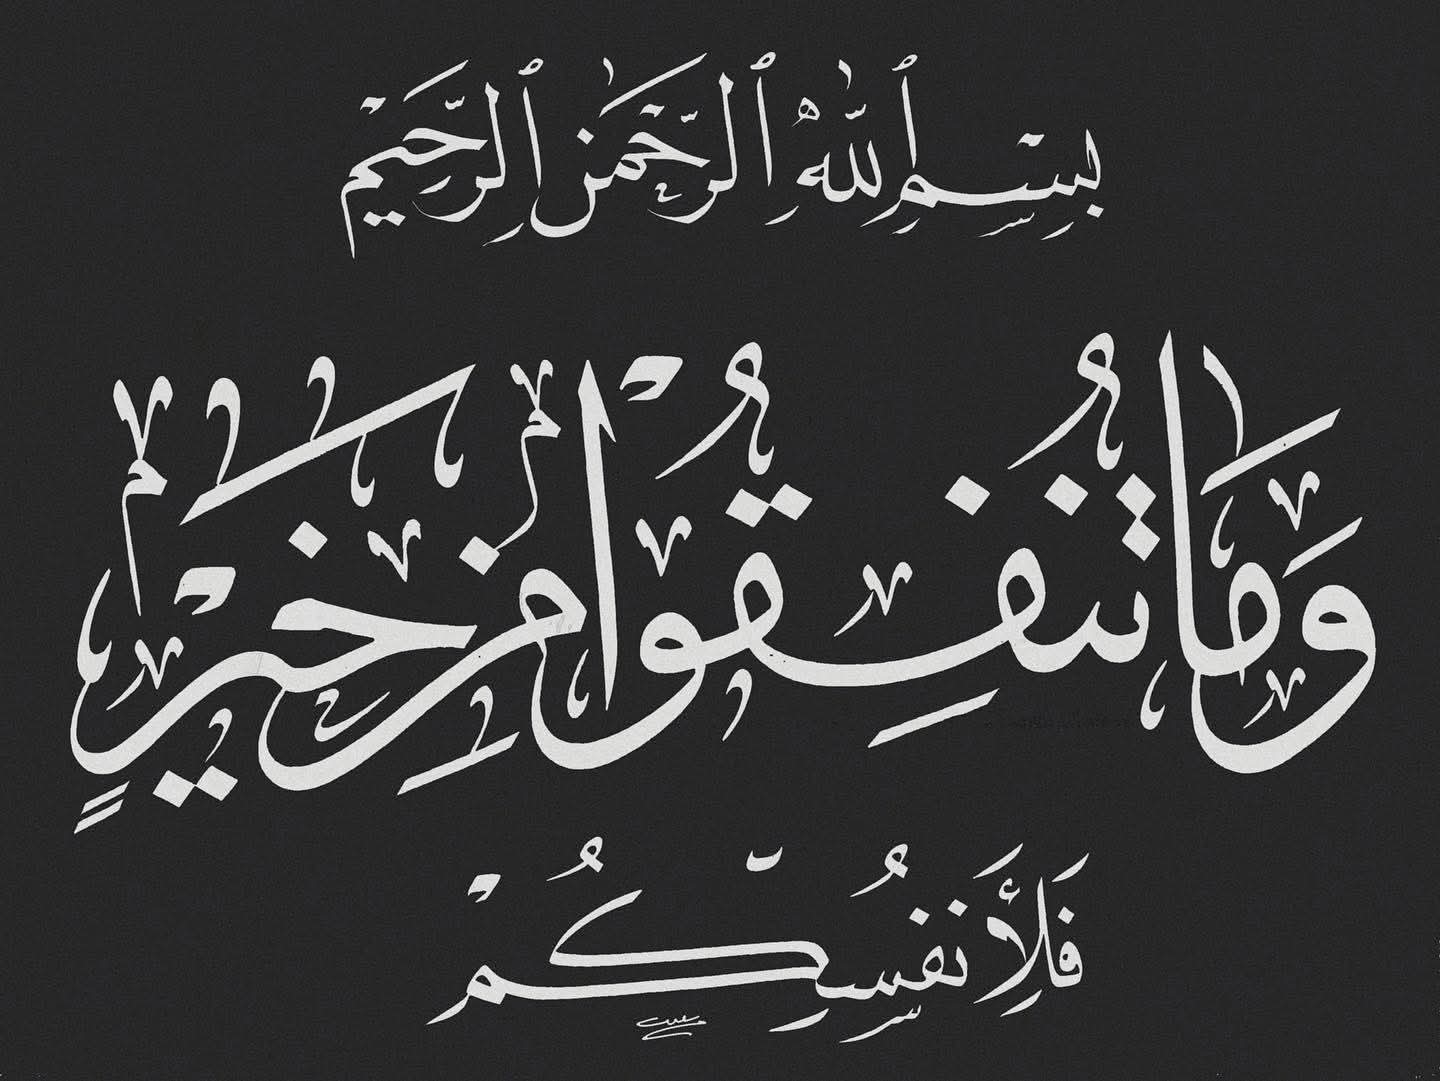 بِسْمِ ٱللَّهِ ٱلرَّحْمَٰنِ ٱلرَّحِيمِ
وَمَا تُنفِقُوا۟ مِنْ خَيْرٍ
فَلِأَنفُسِكُمْ